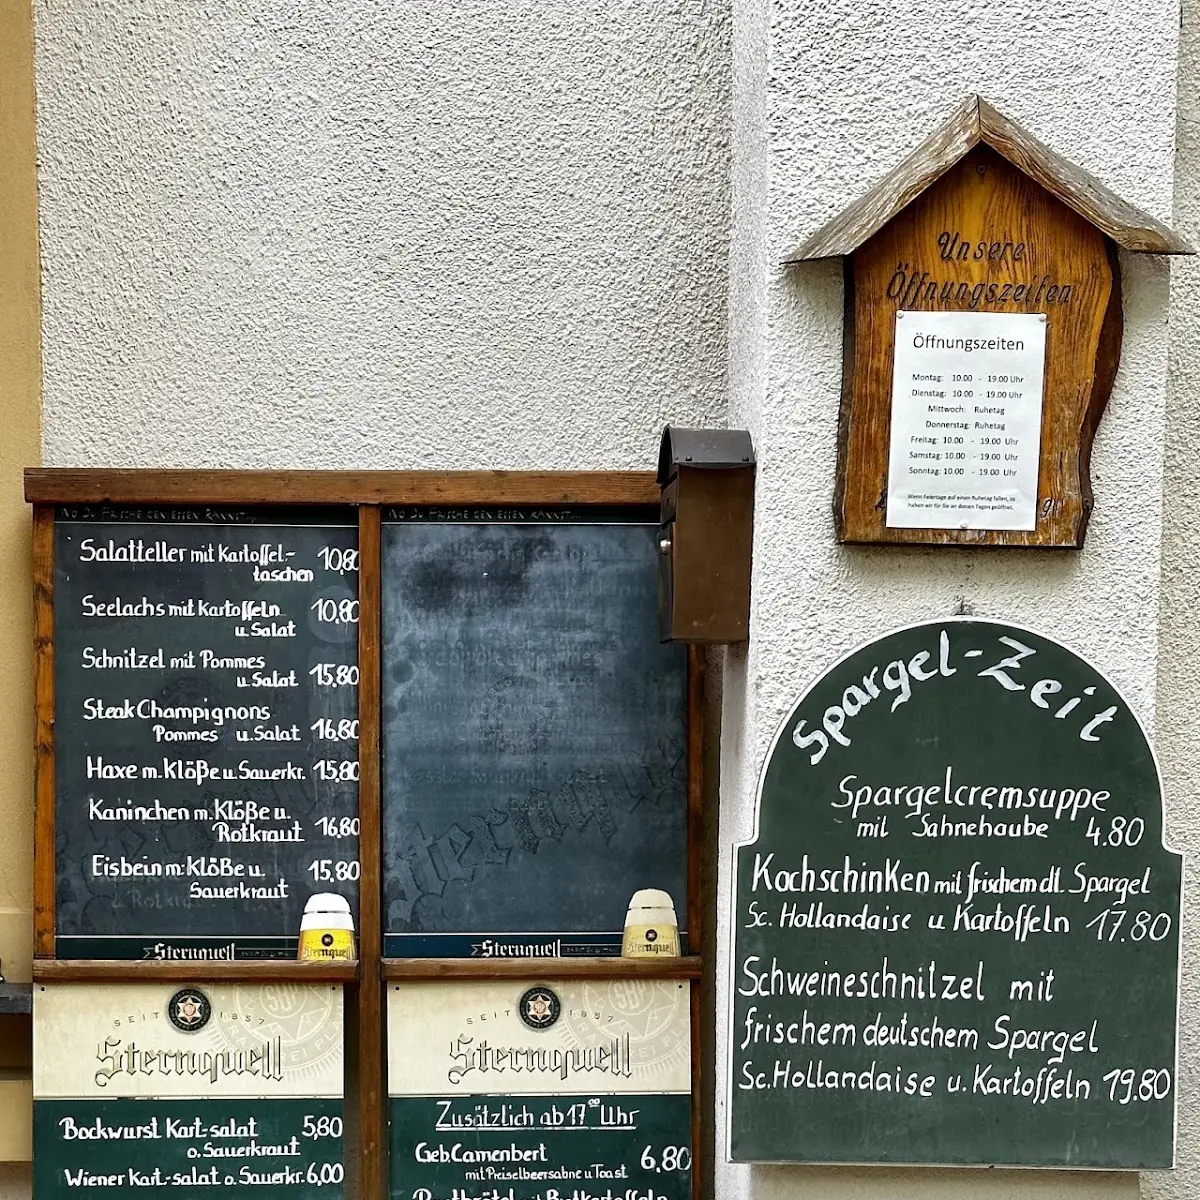 WO DU FRISCHE GENIESSEN KANNST...
Salatteller mit Kartoffel-
taschen 10,80
Seelachs mit Kartoffeln
u. Salat 10,80
Schnitzel mit Pommes
u. Salat 15,80
Steak Champignons
Pommes u. Salat 16,80
Haxe m. Klöße u. Sauerkr. 15,80
Kaninchen m. Klöße u.
Rotkraut 16,80
Eisbein m. Klöße u.
Sauerkraut 15,80
Sternquell
SEIT 1857
Sternquell
Bockwurst Kart.-salat 5,80
o. Sauerkraut
Wiener Kart.-salat o. Sauerkr. 6,00
WO DU FRISCHE GENIESSEN KANNST...
Sternquell
SEIT 1857
Sternquell
Zusätzlich ab 17⁰⁰ Uhr
Geb. Camenbert
mit Preiselbeersahne u Toast 6,80
Unsere
Öffnungszeiten
Öffnungszeiten
Montag: 10.00 - 19.00 Uhr
Dienstag: 10.00 - 19.00 Uhr
Mittwoch: Ruhetag
Donnerstag: Ruhetag
Freitag: 10.00 - 19.00 Uhr
Samstag: 10.00 - 19.00 Uhr
Sonntag: 10.00 - 19.00 Uhr
Wenn Feiertage auf einen Ruhetag fallen, so
haben wir für Sie an diesen Tagen geöffnet.
Spargel-Zeit
Spargelcremsuppe
mit Sahnehaube 4.80
Kochschinken mit frischem dt. Spargel
Sc. Hollandaise u Kartoffeln 17.80
Schweineschnitzel mit
frischem deutschem Spargel
Sc. Hollandaise u. Kartoffeln 19.80